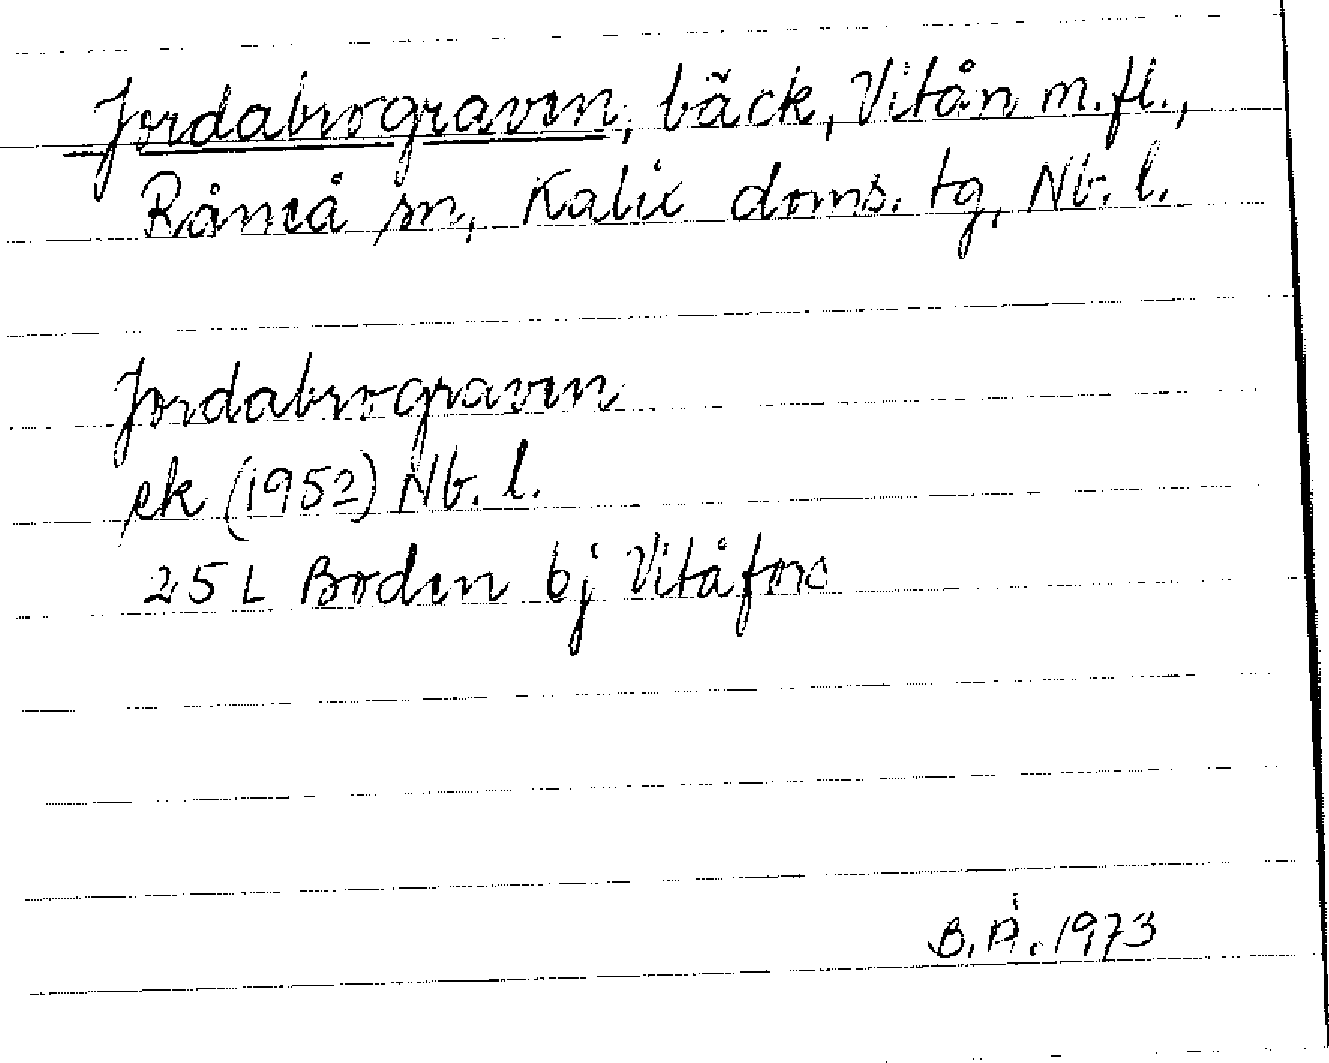 Jordabrograven, bäck, Vitån m.fl.,
Råneå sn, Kalix doms. tg, Nb. l.
Jordabrograven
ek (1952) Nb. l.
25 L Boden bj Vitåfors
B. Å. 1973